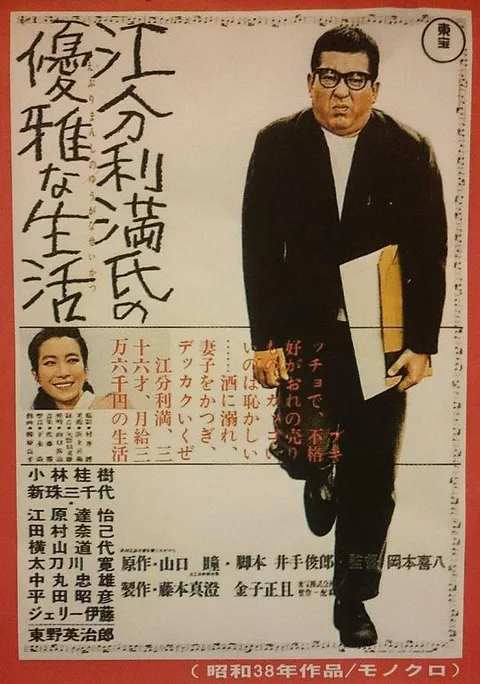 東宝
江分利満氏の
優雅な生活
ブキ
ッチョで、不格
好がおれの売り
いのは恥かしい
……酒に溺れ、
妻子をかつぎ、
デッカクいくぜ
江分利満、三
十六才、月給三
万六千円の生活
小林桂樹
新珠三千代
江原達怡
田村奈己
横山道代
太刀川寛
中丸忠雄
平田昭彦
ジェリー伊藤
東野英治郎
原作・山口 瞳・脚本 井手俊郎・監督 岡本喜八
製作・藤本真澄 金子正且 東宝株式会社 製作・配給
(昭和38年作品/モノクロ)